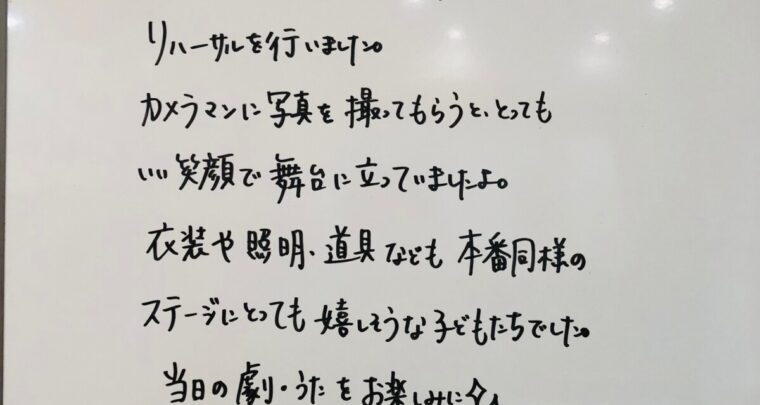 リハーサルを行いました。
カメラマンに写真を撮ってもらうと、とっても
いい笑顔で舞台に立っていましたよ。
衣装や照明、道具なども本番同様の
ステージにとっても嬉しそうな子どもたちでした。
当日の劇・うたをお楽しみに☆